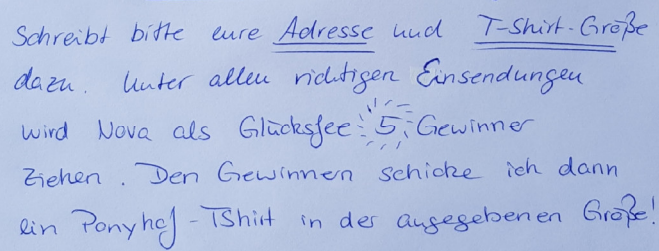 Schreibt bitte eure Adresse und T-Shirt-Größe
dazu. Unter allen richtigen Einsendungen
wird Nova als Glücksfee 5 Gewinner
ziehen. Den Gewinnern schicke ich dann
ein Ponyhof-TShirt in der angegebenen Größe!